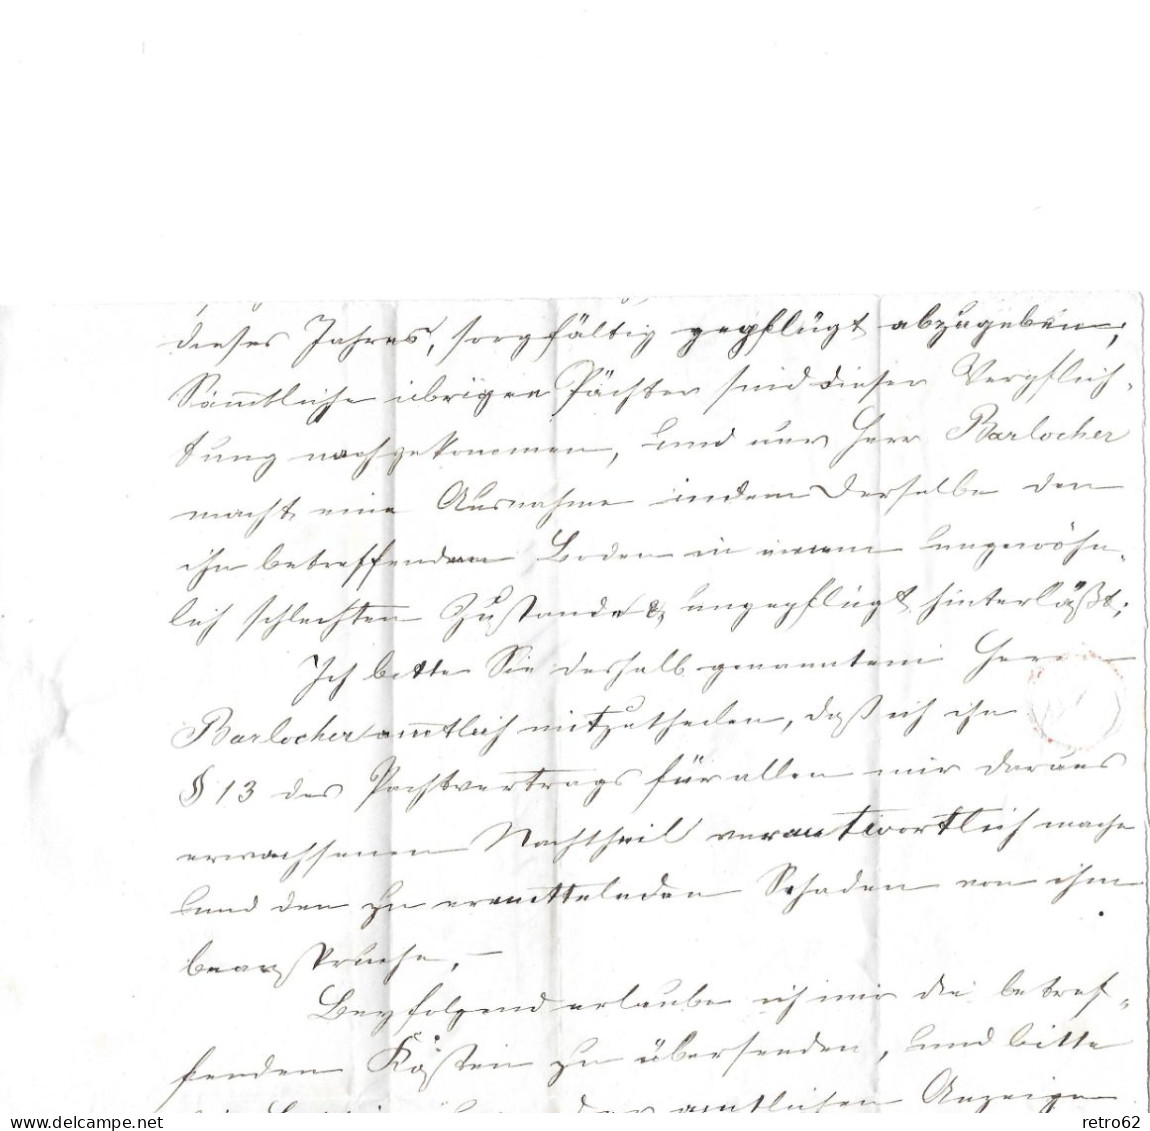 dieses Jahres, sorgfältig gepflügt abzugeben;
Sämmtliche übrigen Pächter sind dieser Verpflich-
tung nachgekommen, und nur Herr Barlocher
macht eine Ausnahme indem derselbe den
ihn betreffenden Boden in einem ungewöhn-
lich schlechten Zustande & ungepflügt hinterläßt;
Ich bitte Sie deshalb genanntem Herrn
Barlocher amtlich mitzutheilen, daß ich ihn
§ 13 des Pachtvertrags für allen mir daraus
erwachsenen Nachtheil verantwortlich mache
und den zu ermittelnden Schaden von ihm
beanspruche, —
Beyfolgend erlaube ich mir die betref-
fenden Kösten zu übersenden, und bitte
der amtlichen Anzeigen
www.delcampe.net
retro62